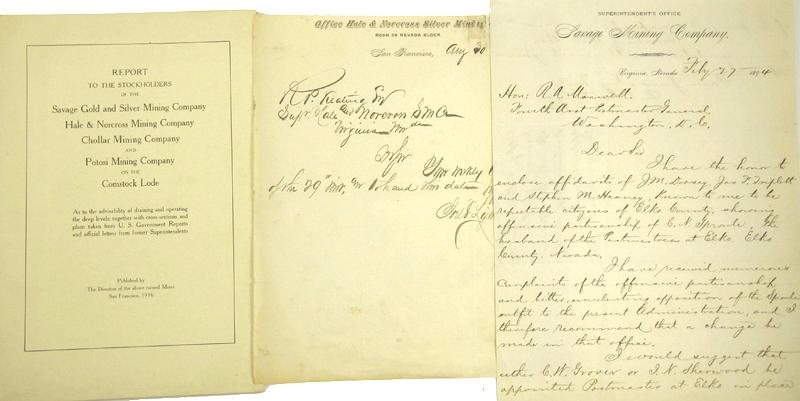 REPORT
TO THE STOCKHOLDERS
OF THE
Savage Gold and Silver Mining Company
Hale & Norcross Mining Company
Chollar Mining Company
AND
Potosi Mining Company
ON THE
Comstock Lode
As to the advisability of draining and operating
the deep levels; together with cross-sections and
plans taken from U. S. Government Reports
and official letters from former Superintendents
Published by
The Direction of the above named Mines
San Francisco, 1916
Office Hale & Norcross Silver Mining
ROOM 58 NEVADA BLOCK.
San Francisco, Aug
R P. Keating
Supt. Hale & Norcross S M Co
Virginia
Dr Sir
Your
of the 29" to hand date
SUPERINTENDENT'S OFFICE
Savage Mining Company.
Virginia, Nevada Feby 27 1894
Hon: R. A. Maxwell.
Fourth Asst Postmaster General,
Washington, D. C.
Dear Sir
I have the honor to
enclose affidavits of J. M. Dorsey, Jas F. Triplett
and Stephen M. Heaney, known to me to be
reputable citizens of Elko County, showing
offensive partisanship of C. N. Sproule, the
husband of the Postmistress at Elko, Elko
County, Nevada.
I have received numerous
complaints of the offensive partisanship
and bitter, unrelenting opposition of the Sproule
outfit to the present Administration, and I
therefore recommend that a change be
made in that office.
I would suggest that
either C. W. Grover or I. N. Sherwood be
appointed Postmaster at Elko in place